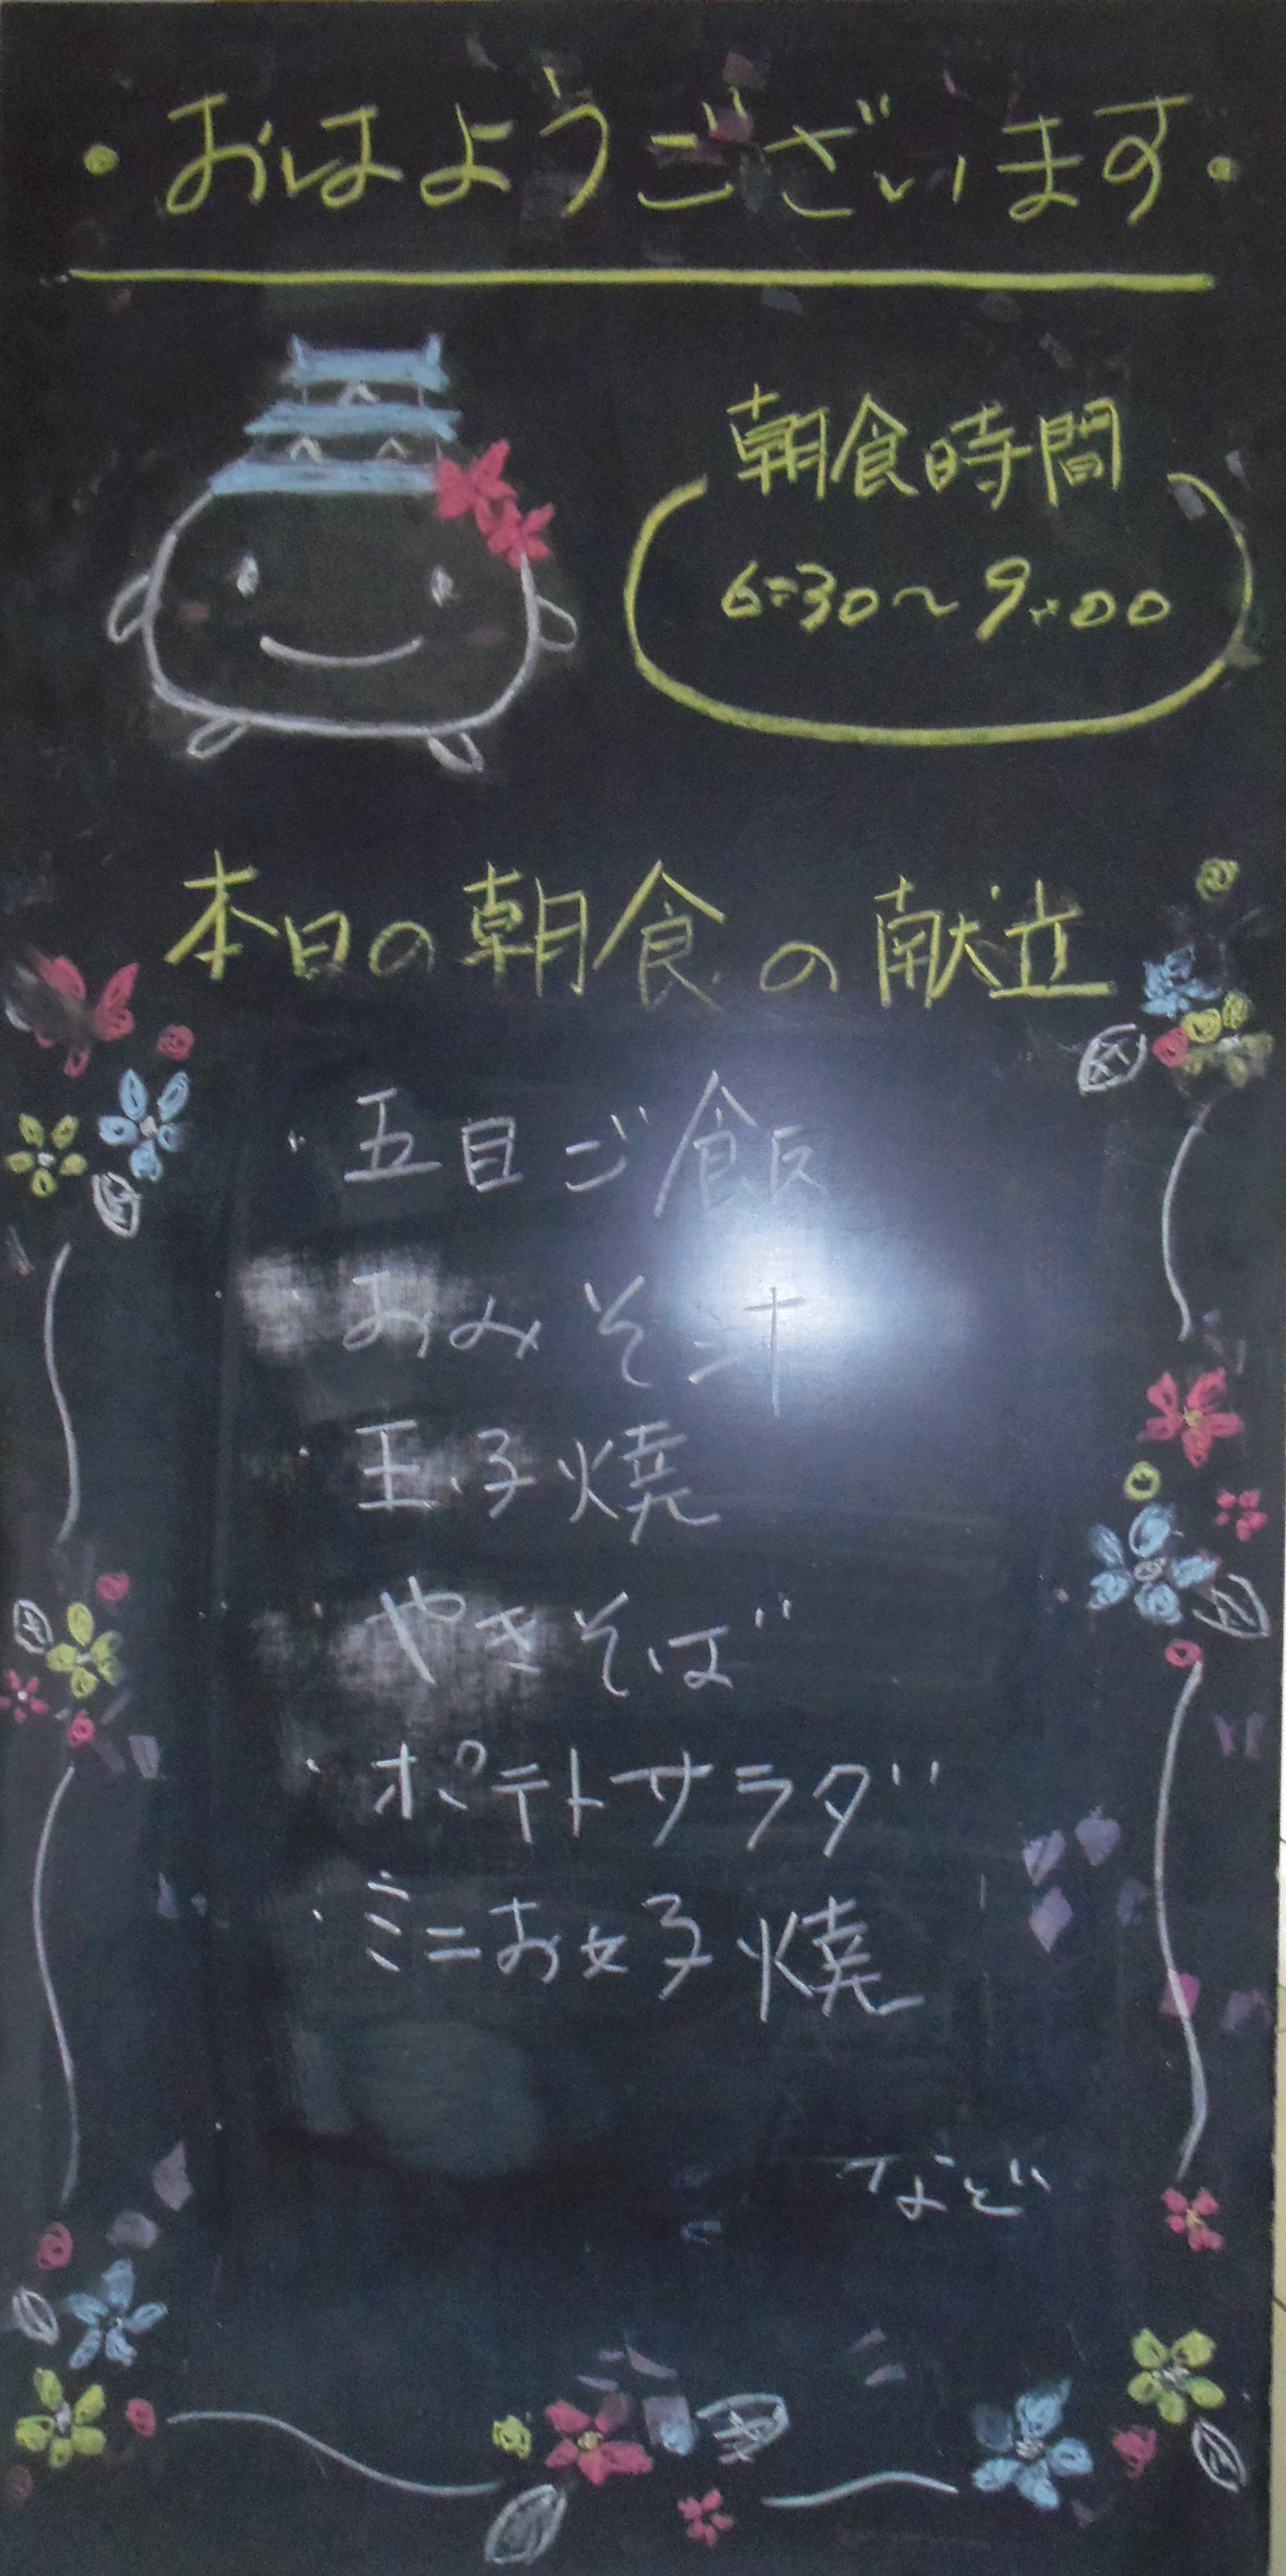 ・おはようございます・
朝食時間
6:30～9:00
本日の朝食の献立
・五目ご飯
・おみそ汁
・玉子焼
・やきそば
・ポテトサラダ
・ミニお好焼
など